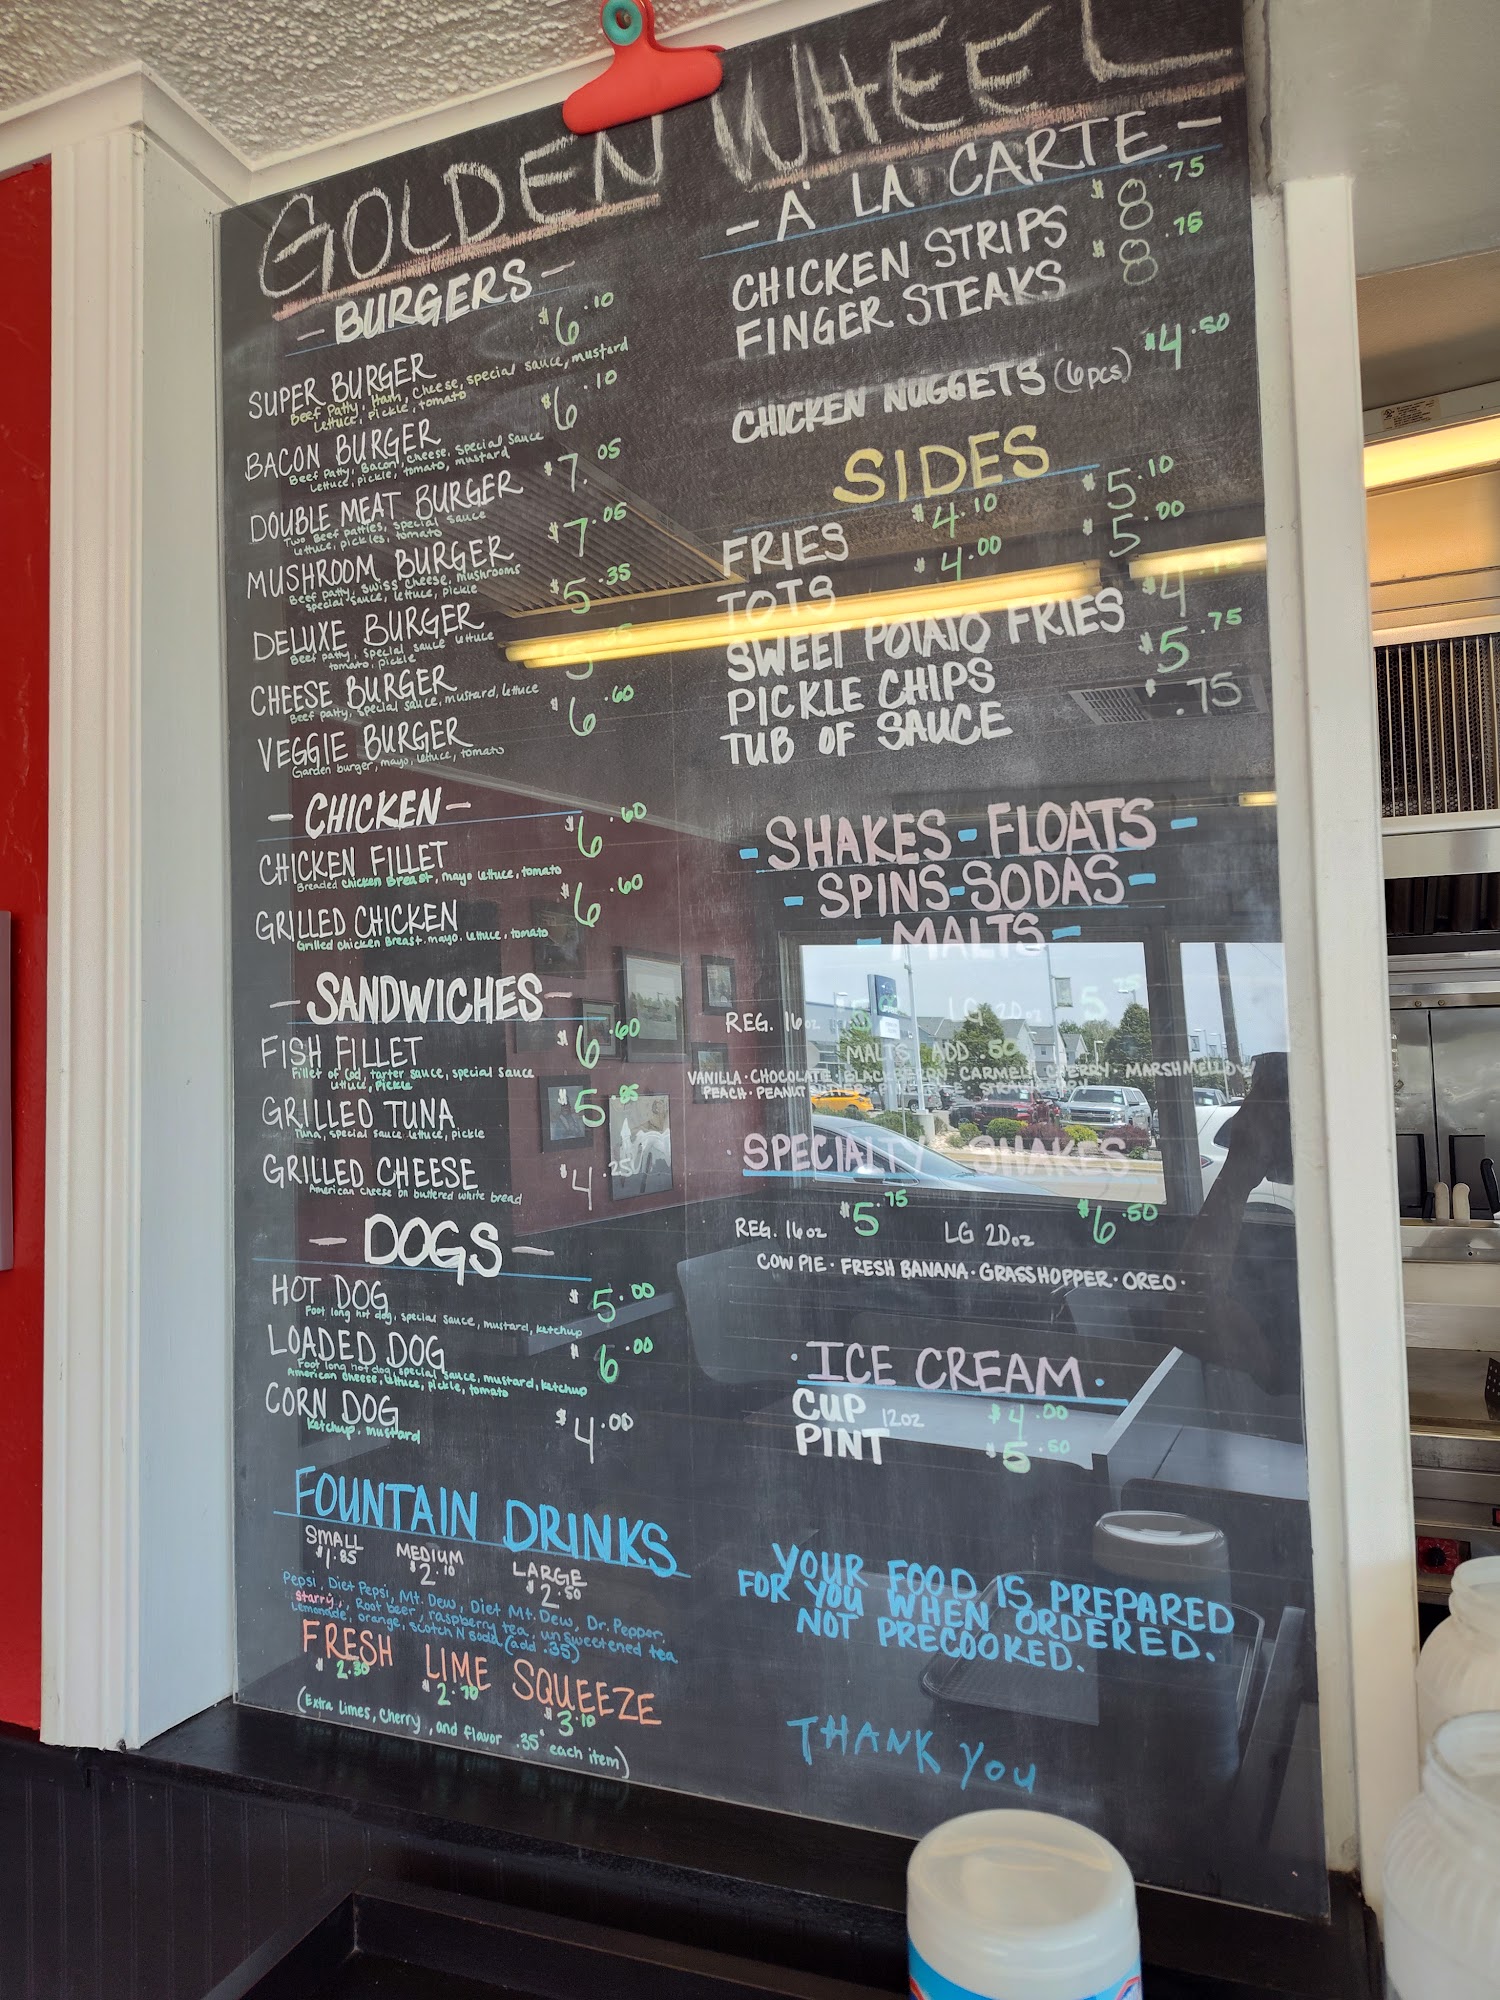 GOLDEN WHEEL
- BURGERS -
SUPER BURGER $6.10
Beef Patty, Ham, Cheese, special sauce, mustard
Lettuce, pickle, tomato
BACON BURGER $6.10
Beef Patty, Bacon, Cheese, Special Sauce
Lettuce, pickle, tomato, mustard
DOUBLE MEAT BURGER $7.05
Two Beef patties, special sauce
lettuce, pickles, tomato
MUSHROOM BURGER $7.05
Beef patty, swiss cheese, mushrooms
special sauce, lettuce, pickle
DELUXE BURGER $5.35
Beef patty, special sauce lettuce
tomato, pickle
CHEESE BURGER
Beef patty, special sauce, mustard, lettuce
VEGGIE BURGER $6.60
Garden burger, mayo, lettuce, tomato
- CHICKEN -
CHICKEN FILLET $6.60
Breaded chicken Breast, mayo lettuce, tomato
GRILLED CHICKEN $6.60
Grilled chicken Breast, mayo, lettuce, tomato
- SANDWICHES -
FISH FILLET $6.60
Fillet of Cod, tarter sauce, special sauce
lettuce, pickle
GRILLED TUNA $5.85
Tuna, special sauce lettuce, pickle
GRILLED CHEESE $4.25
American cheese on buttered white bread
- DOGS -
HOT DOG $5.00
Foot long hot dog, special sauce, mustard, ketchup
LOADED DOG $6.00
Foot long hot dog, special sauce, mustard, ketchup
American cheese, lettuce, pickle, tomato
CORN DOG $4.00
ketchup. mustard
FOUNTAIN DRINKS
SMALL MEDIUM LARGE
$1.85 $2.10 $2.50
Pepsi, Diet Pepsi, Mt. Dew, Diet Mt. Dew, Dr. Pepper,
Starry, Root beer, raspberry tea, unsweetened tea
Lemonade, orange, scotch N soda (add .35)
FRESH LIME SQUEEZE
$2.30 $2.70 $3.10
(Extra Limes, Cherry, and flavor .35 each item)
- A' LA CARTE -
CHICKEN STRIPS $8.75
FINGER STEAKS $8.75
CHICKEN NUGGETS (6pcs) $4.50
SIDES
FRIES $4.10 $5.10
TOTS $4.00 $5.00
SWEET POTATO FRIES
PICKLE CHIPS $5.75
TUB OF SAUCE $.75
- SHAKES - FLOATS -
- SPINS - SODAS -
- MALTS -
REG. 16oz LG 20oz
MALTS ADD .50
VANILLA · CHOCOLATE · BLACKBERRY · CARMEL · CHERRY · MARSHMELLOW
PEACH · PEANUT STRAWBERRY
· SPECIALTY SHAKES
REG. 16oz $5.75 LG 20oz $6.50
COW PIE · FRESH BANANA · GRASSHOPPER · OREO ·
· ICE CREAM ·
CUP 12oz $4.00
PINT $5.50
YOUR FOOD IS PREPARED
FOR YOU WHEN ORDERED.
NOT PRECOOKED.
THANK YOU